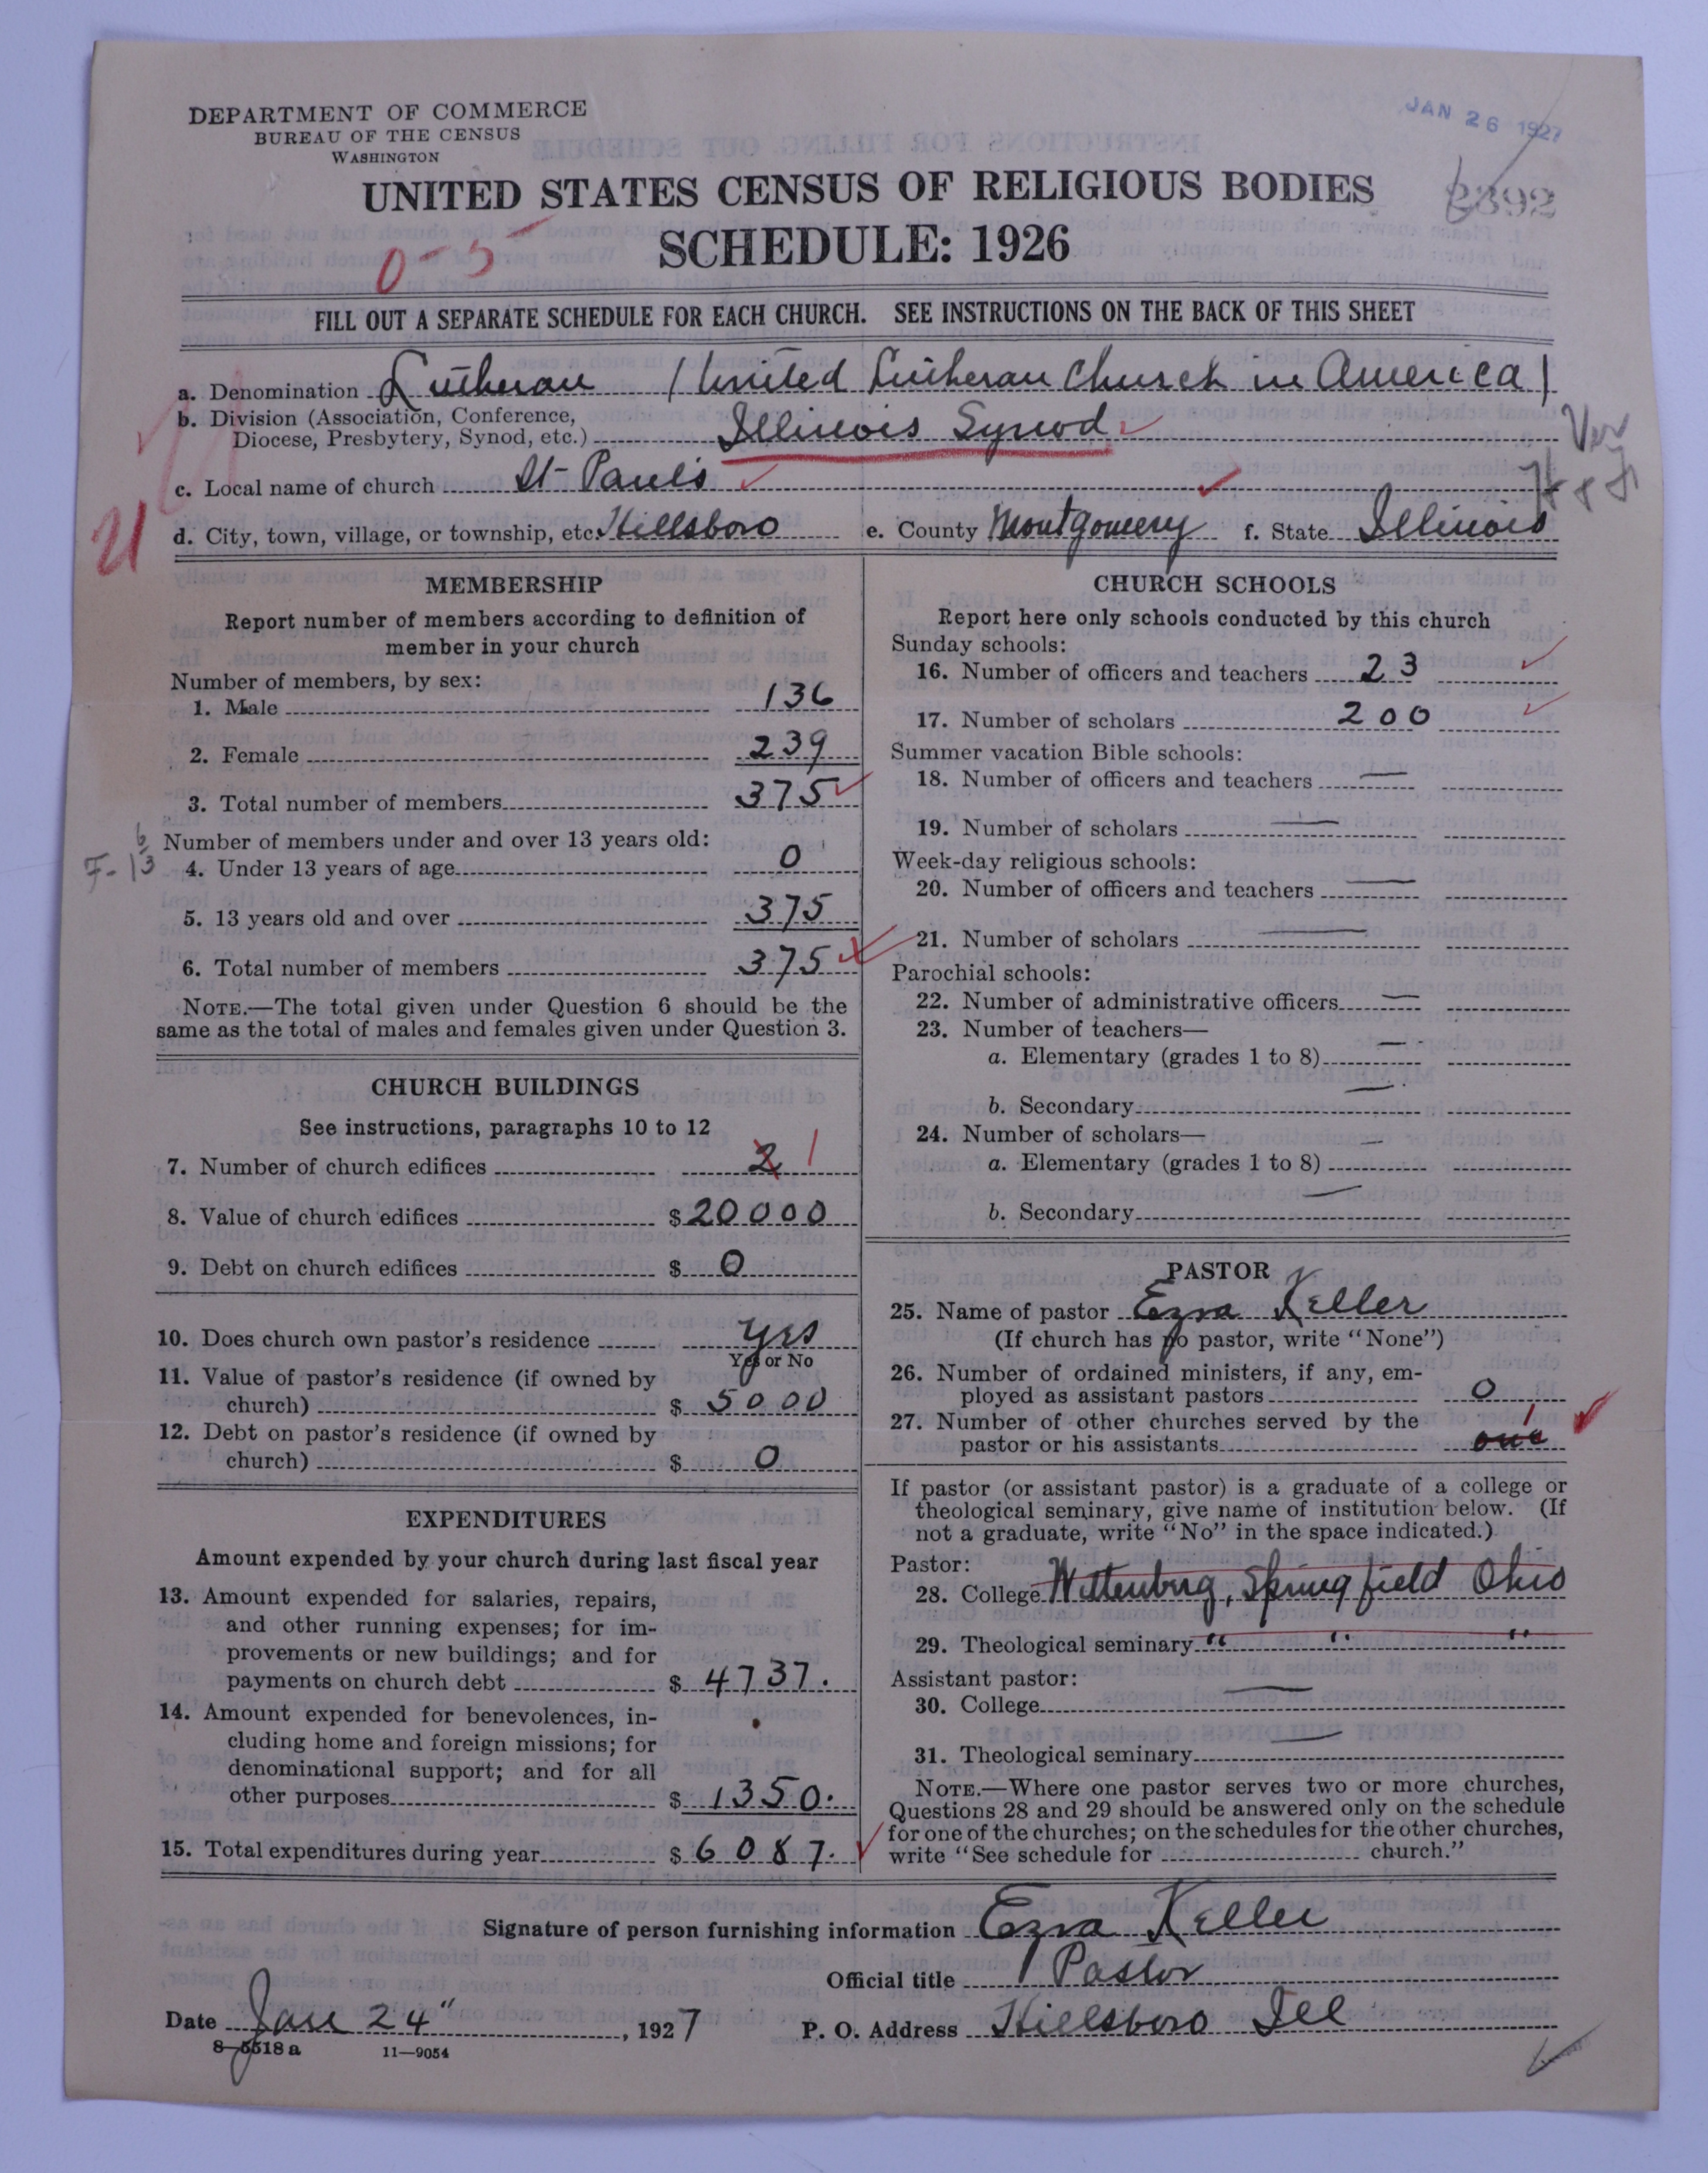 DEPARTMENT OF COMMERCE
BUREAU OF THE CENSUS
WASHINGTON
JAN 26 1927
UNITED STATES CENSUS OF RELIGIOUS BODIES
2392
SCHEDULE: 1926
0-5
FILL OUT A SEPARATE SCHEDULE FOR EACH CHURCH. SEE INSTRUCTIONS ON THE BACK OF THIS SHEET
a. Denomination Lutheran (United Lutheran Church in America)
b. Division (Association, Conference,
Diocese, Presbytery, Synod, etc.) Illinois Synod
Ver
c. Local name of church St Paul's
d. City, town, village, or township, etc. Hillsboro e. County Montgomery f. State Illinois
MEMBERSHIP
Report number of members according to definition of
member in your church
Number of members, by sex:
1. Male 136
2. Female 239
3. Total number of members 375
Number of members under and over 13 years old:
F-13
4. Under 13 years of age 0
5. 13 years old and over 375
6. Total number of members 375
NOTE.—The total given under Question 6 should be the
same as the total of males and females given under Question 3.
CHURCH BUILDINGS
See instructions, paragraphs 10 to 12
7. Number of church edifices 2 1
8. Value of church edifices $ 20000
9. Debt on church edifices $ 0
10. Does church own pastor's residence yes
Yes or No
11. Value of pastor's residence (if owned by
church) $ 5000
12. Debt on pastor's residence (if owned by
church) $ 0
EXPENDITURES
Amount expended by your church during last fiscal year
13. Amount expended for salaries, repairs,
and other running expenses; for im-
provements or new buildings; and for
payments on church debt $ 4737.
14. Amount expended for benevolences, in-
cluding home and foreign missions; for
denominational support; and for all
other purposes $ 1350.
15. Total expenditures during year $ 6087.
CHURCH SCHOOLS
Report here only schools conducted by this church
Sunday schools:
16. Number of officers and teachers 23
17. Number of scholars 200
Summer vacation Bible schools:
18. Number of officers and teachers —
19. Number of scholars —
Week-day religious schools:
20. Number of officers and teachers —
21. Number of scholars —
Parochial schools:
22. Number of administrative officers —
23. Number of teachers—
a. Elementary (grades 1 to 8) —
b. Secondary —
24. Number of scholars—
a. Elementary (grades 1 to 8) —
b. Secondary —
PASTOR
25. Name of pastor Ezra Keller
(If church has no pastor, write "None")
26. Number of ordained ministers, if any, em-
ployed as assistant pastors 0
27. Number of other churches served by the
pastor or his assistants one 1
If pastor (or assistant pastor) is a graduate of a college or
theological seminary, give name of institution below. (If
not a graduate, write "No" in the space indicated.)
Pastor:
28. College Wittenberg, Springfield Ohio
29. Theological seminary " " "
Assistant pastor:
30. College —
31. Theological seminary —
NOTE.—Where one pastor serves two or more churches,
Questions 28 and 29 should be answered only on the schedule
for one of the churches; on the schedules for the other churches,
write "See schedule for church."
Signature of person furnishing information Ezra Keller
Official title Pastor
Date Jan 24", 1927 P. O. Address Hillsboro Ill
8-5518a 11-9054